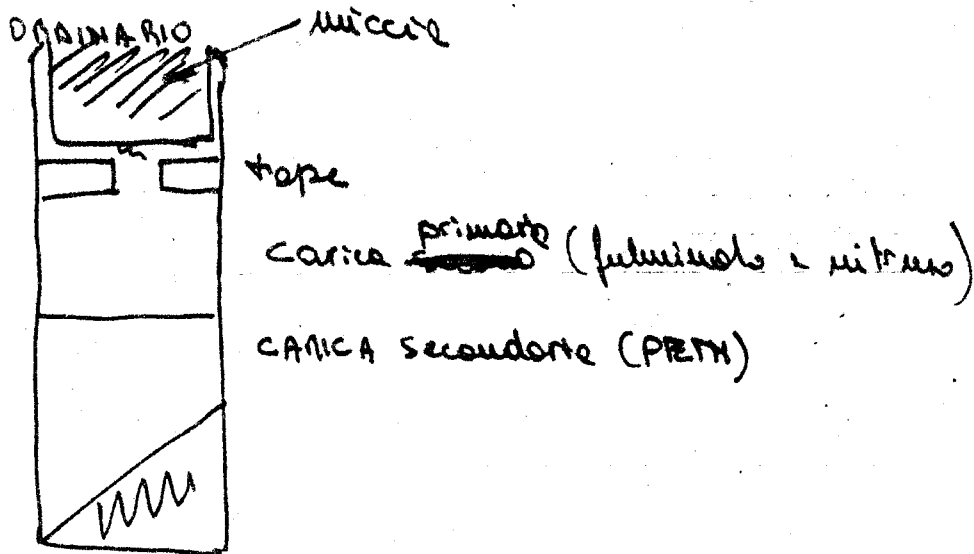 ORDINARIO
miccia
carica primaria (fulminato nitruro)
CARICA secondaria (PETN)